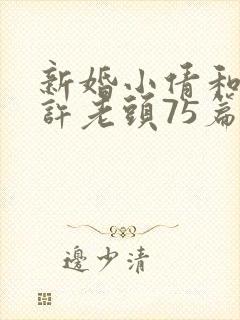 新婚小倩和
許老頭75篇
邊少清